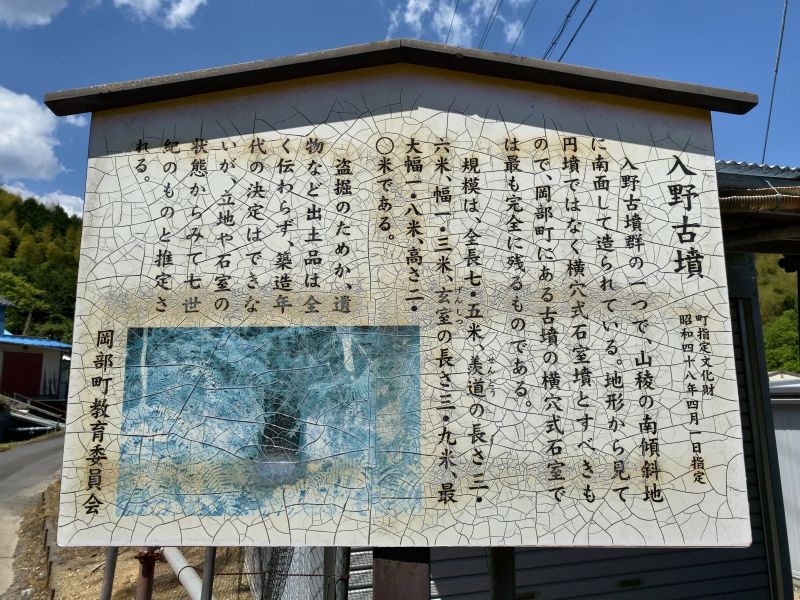 入野古墳
町指定文化財
昭和四十八年四月一日指定
入野古墳群の一つで、山稜の南傾斜地
に南面して造られている。地形から見て
円墳ではなく横穴式石室墳とすべきも
ので、岡部町にある古墳の横穴式石室で
は最も完全に残るものである。
規模は、全長七・五米、羨道の長さ三・
せんどう
六米、幅一・三米、玄室の長さ三・九米、最
げんしつ
大幅一・八米、高さ二・
〇米である。
盗掘のためか、遺
物など出土品は全
く伝わらず、築造年
代の決定はできな
いが、立地や石室の
状態からみて七世
紀のものと推定さ
れる。
岡部町教育委員会